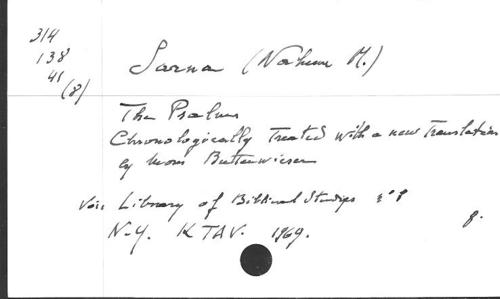 314
138
41
(8)
Sarna (Nahum M.)
The Psalms
Chronologically Treated with a new Translation
by Moses Buttenwieser
Voir Library of Biblical Studies n° 8
N.Y. KTAV. 1969.
8.